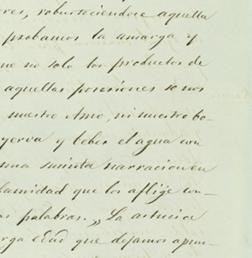 res, robusteciendose aquella
probamos la amarga y
ue no solo los productos de
aquellas posesiones se nos
nuestro Amo, ni nuestro ho-
yerva y beber el agua con
ma sucinta narracion en
lamidad que los aflije con-
as palabras. „La astucia
rga edad que dejamos apun-